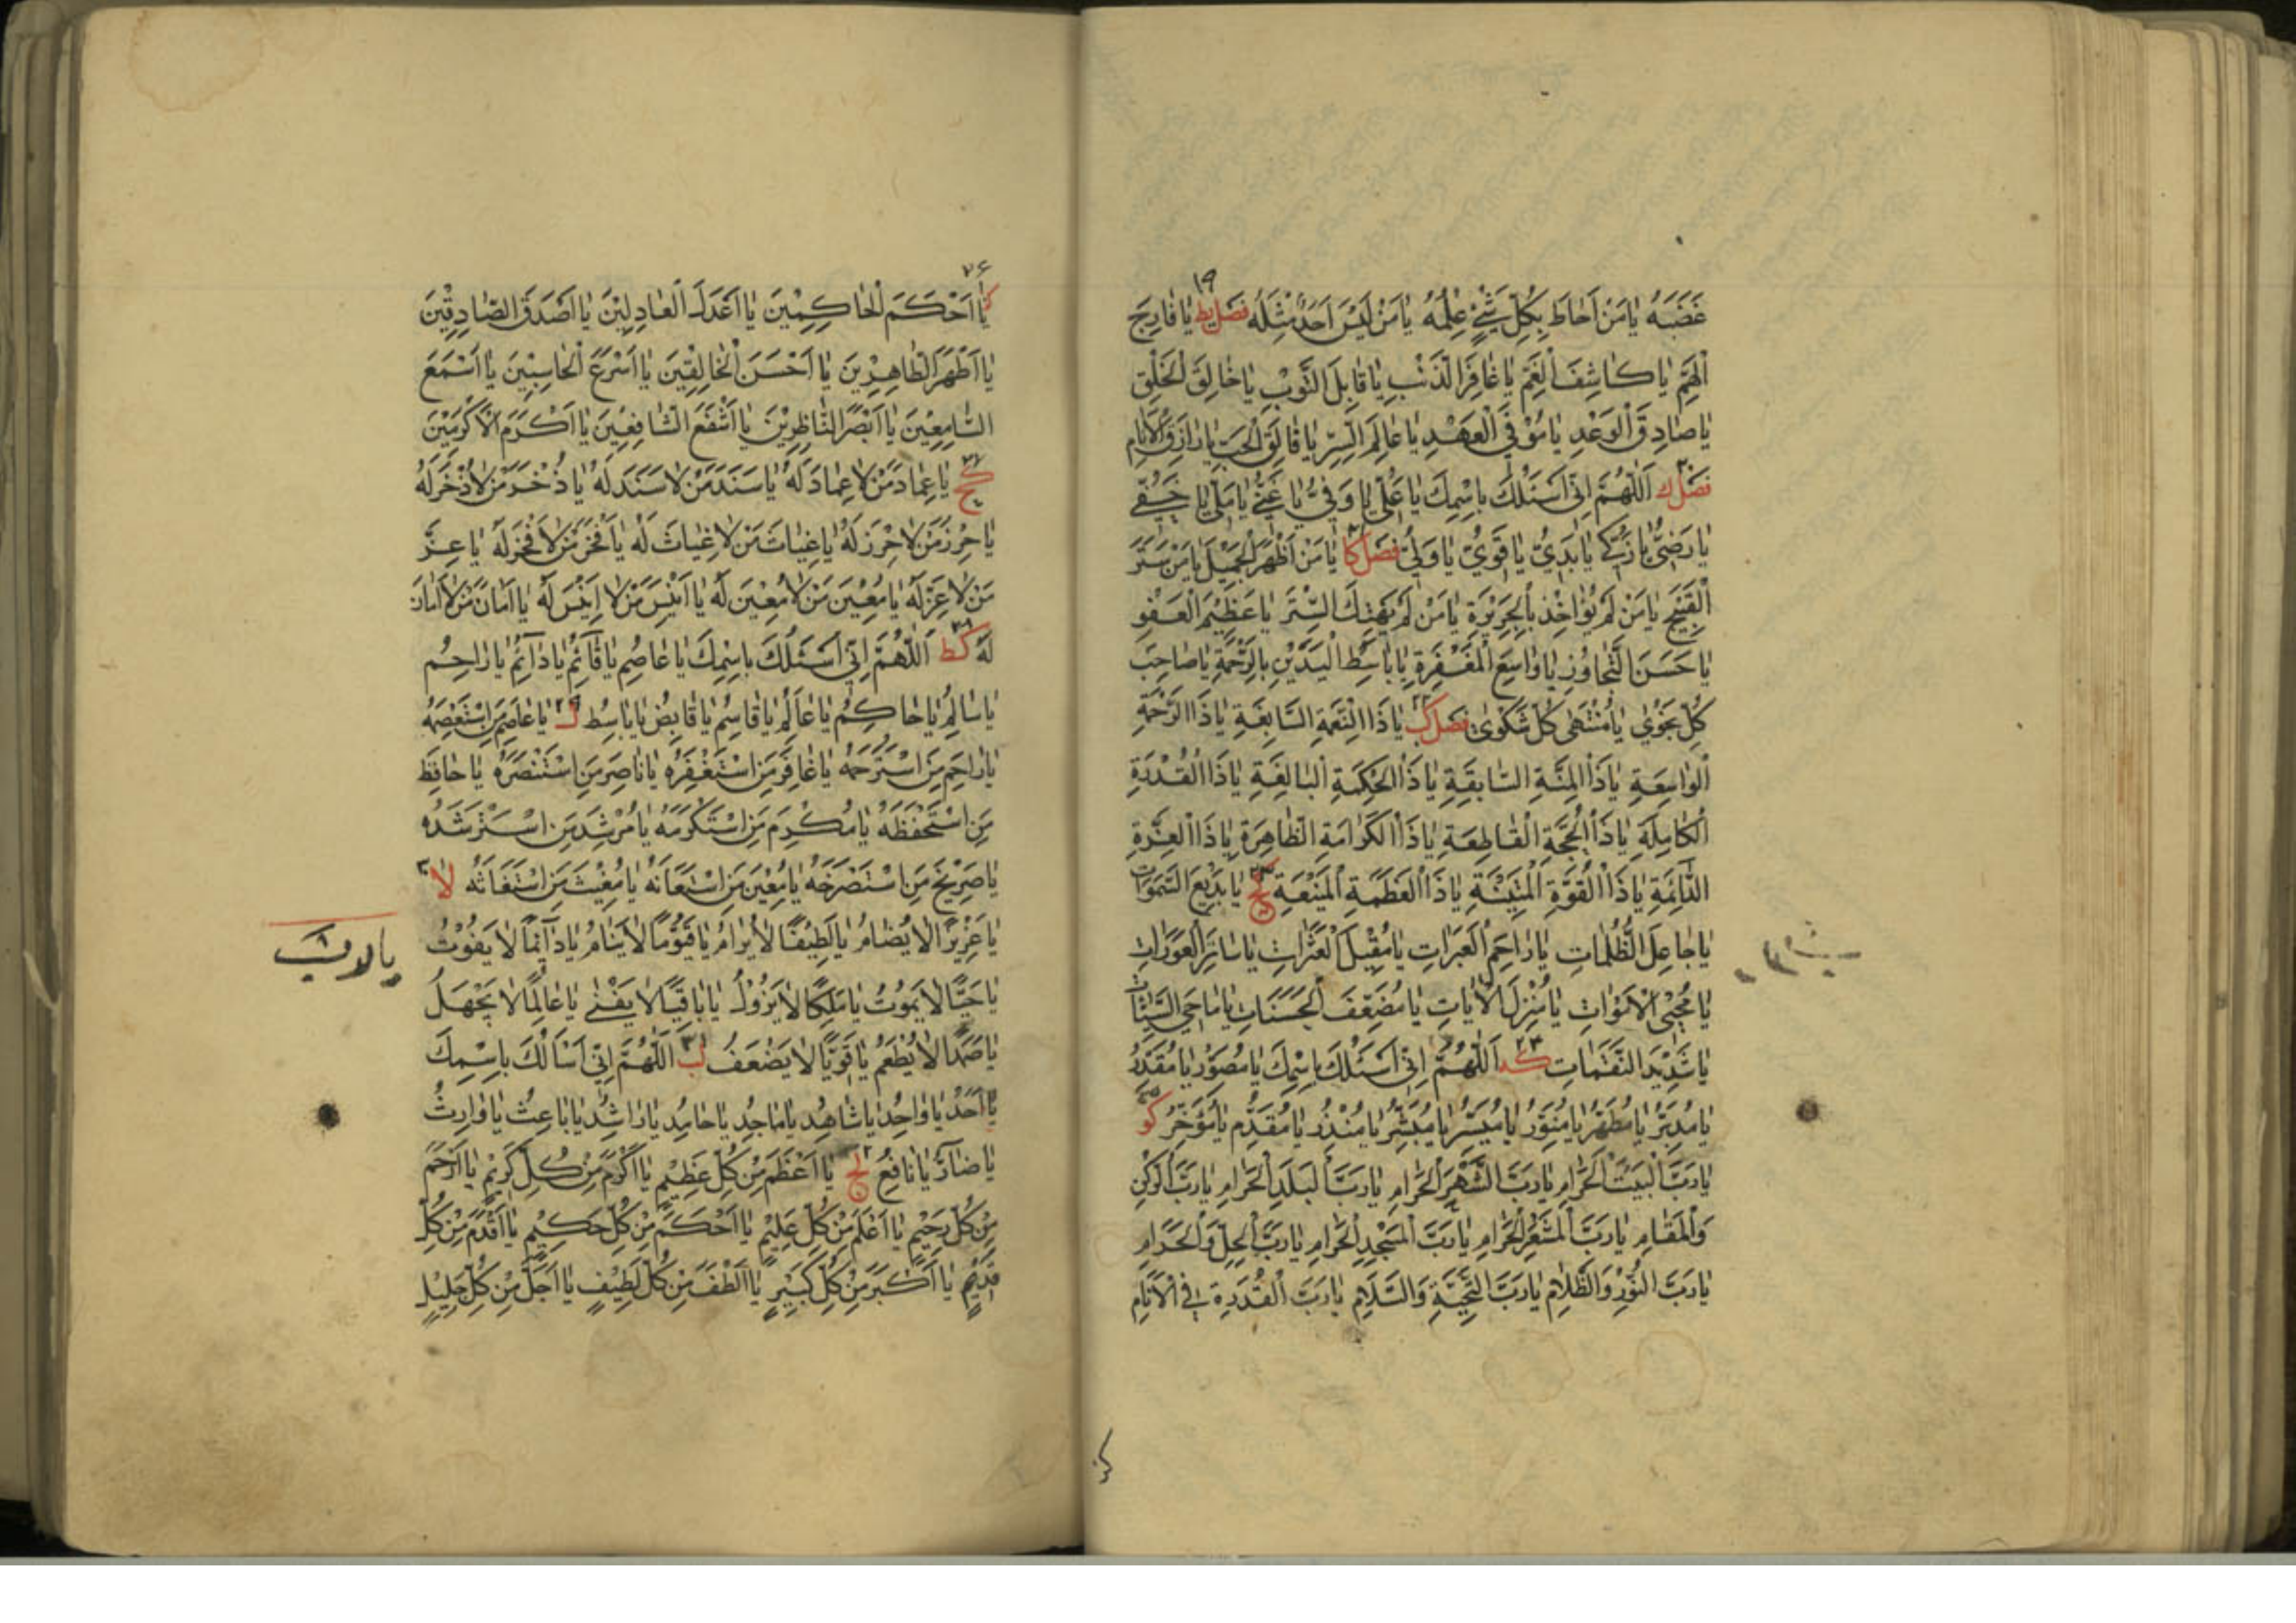 ١٩
غَضَبَهُ يَا مَنْ اَحَاطَ بِكُلِّ شَیْءٍ عِلْمُهُ يَا مَنْ لَيْسَ اَحَدٌ مِثْلَهُ فصل يط يَا فَارِجَ
الْهَمِّ يَا كَاشِفَ الْغَمِّ يَا غَافِرَ الذَّنْبِ يَا قَابِلَ التَّوْبِ يَا خَالِقَ الْخَلْقِ
يَا صَادِقَ الْوَعْدِ يَا مُوْفِیَ الْعَهْدِ يَا عَالِمَ السِّرِّ يَا فَالِقَ الْحَبِّ يَا رَازِقَ الْاَنَامِ
فصل ك اَللّٰهُمَّ اِنِّی اَسْئَلُكَ بِاسْمِكَ يَا عَلِیُّ يَا وَفِیُّ يَا غَنِیُّ يَا مَلِیُّ يَا حَفِیُّ
يَا رَضِیُّ يَا زَكِیُّ يَا بَدِیُّ يَا قَوِیُّ يَا وَلِیُّ فصل كا يَا مَنْ اَظْهَرَ الْجَمِيْلَ يَا مَنْ سَتَرَ
الْقَبِيْحَ يَا مَنْ لَمْ يُؤَاخِذْ بِالْجَرِيْرَةِ يَا مَنْ لَمْ يَهْتِكْ السِّتْرَ يَا عَظِيْمَ الْعَفْوِ
يَا حَسَنَ التَّجَاوُزِ يَا وَاسِعَ الْمَغْفِرَةِ يَا بَاسِطَ الْيَدَيْنِ بِالرَّحْمَةِ يَا صَاحِبَ
كُلِّ نَجْوٰی يَا مُنْتَهٰی كُلِّ شَكْوٰی فصل كب يَا ذَا النِّعْمَةِ السَّابِغَةِ يَا ذَا الرَّحْمَةِ
الْوَاسِعَةِ يَا ذَا الْمِنَّةِ السَّابِقَةِ يَا ذَا الْحِكْمَةِ الْبَالِغَةِ يَا ذَا الْقُدْرَةِ
الْكَامِلَةِ يَا ذَا الْحُجَّةِ الْقَاطِعَةِ يَا ذَا الْكَرَامَةِ الظَّاهِرَةِ يَا ذَا الْعِزَّةِ
الدَّائِمَةِ يَا ذَا الْقُوَّةِ الْمَتِيْنَةِ يَا ذَا الْعَظَمَةِ الْمَنِيْعَةِ كج يَا بَدِيْعَ السَّمٰوَاتِ
يَا جَاعِلَ الظُّلُمَاتِ يَا رَاحِمَ الْعَبَرَاتِ يَا مُقِيْلَ الْعَثَرَاتِ يَا سَاتِرَ الْعَوْرَاتِ
يَا مُحْيِیَ الْاَمْوَاتِ يَا مُنْزِلَ الْاٰيَاتِ يَا مُضَعِّفَ الْحَسَنَاتِ يَا مَاحِیَ السَّيِّئَاتِ
يَا شَدِيْدَ النَّقَمَاتِ كد اَللّٰهُمَّ اِنِّی اَسْئَلُكَ بِاسْمِكَ يَا مُصَوِّرُ يَا مُقَدِّرُ
يَا مُدَبِّرُ يَا مُطَهِّرُ يَا مُنَوِّرُ يَا مُيَسِّرُ يَا مُبَشِّرُ يَا مُنْذِرُ يَا مُقَدِّمُ يَا مُؤَخِّرُ كو
يَا رَبَّ الْبَيْتِ الْحَرَامِ يَا رَبَّ الشَّهْرِ الْحَرَامِ يَا رَبَّ الْبَلَدِ الْحَرَامِ يَا رَبَّ الرُّكْنِ
وَالْمَقَامِ يَا رَبَّ الْمَشْعَرِ الْحَرَامِ يَا رَبَّ الْمَسْجِدِ الْحَرَامِ يَا رَبَّ الْحِلِّ وَالْحَرَامِ
يَا رَبَّ النُّوْرِ وَالظَّلَامِ يَا رَبَّ التَّحِيَّةِ وَالسَّلَامِ يَا رَبَّ الْقُدْرَةِ فِی الْاَنَامِ
٢٦
يَا اَحْكَمَ الْحَاكِمِيْنَ يَا اَعْدَلَ الْعَادِلِيْنَ يَا اَصْدَقَ الصَّادِقِيْنَ
يَا اَطْهَرَ الطَّاهِرِيْنَ يَا اَحْسَنَ الْخَالِقِيْنَ يَا اَسْرَعَ الْحَاسِبِيْنَ يَا اَسْمَعَ
السَّامِعِيْنَ يَا اَبْصَرَ النَّاظِرِيْنَ يَا اَشْفَعَ الشَّافِعِيْنَ يَا اَكْرَمَ الْاَكْرَمِيْنَ
كح يَا عِمَادَ مَنْ لَا عِمَادَ لَهُ يَا سَنَدَ مَنْ لَا سَنَدَ لَهُ يَا ذُخْرَ مَنْ لَا ذُخْرَ لَهُ
يَا حِرْزَ مَنْ لَا حِرْزَ لَهُ يَا غِيَاثَ مَنْ لَا غِيَاثَ لَهُ يَا فَخْرَ مَنْ لَا فَخْرَ لَهُ يَا عِزَّ
مَنْ لَا عِزَّ لَهُ يَا مُعِيْنَ مَنْ لَا مُعِيْنَ لَهُ يَا اَنِيْسَ مَنْ لَا اَنِيْسَ لَهُ يَا اَمَانَ مَنْ لَا اَمَانَ
لَهُ كط اَللّٰهُمَّ اِنِّی اَسْئَلُكَ بِاسْمِكَ يَا عَاصِمُ يَا قَائِمُ يَا دَائِمُ يَا رَاحِمُ
يَا سَالِمُ يَا حَاكِمُ يَا عَالِمُ يَا قَاسِمُ يَا قَابِضُ يَا بَاسِطُ ل يَا عَاصِمَ مَنِ اسْتَعْصَمَهُ
يَا رَاحِمَ مَنِ اسْتَرْحَمَهُ يَا غَافِرَ مَنِ اسْتَغْفَرَهُ يَا نَاصِرَ مَنِ اسْتَنْصَرَهُ يَا حَافِظَ
مَنِ اسْتَحْفَظَهُ يَا مُكْرِمَ مَنِ اسْتَكْرَمَهُ يَا مُرْشِدَ مَنِ اسْتَرْشَدَهُ
يَا صَرِيْخَ مَنِ اسْتَصْرَخَهُ يَا مُعِيْنَ مَنِ اسْتَعَانَهُ يَا مُغِيْثَ مَنِ اسْتَغَاثَهُ لا
يَا عَزِيْزًا لَا يُضَامُ يَا لَطِيْفًا لَا يُرَامُ يَا قَيُّوْمًا لَا يَنَامُ يَا دَائِمًا لَا يَفُوْتُ
يَا حَيًّا لَا يَمُوْتُ يَا مَلِكًا لَا يَزُوْلُ يَا بَاقِيًا لَا يَفْنٰی يَا عَالِمًا لَا يَجْهَلُ
يَا صَمَدًا لَا يُطْعَمُ يَا قَوِيًّا لَا يَضْعَفُ لب اَللّٰهُمَّ اِنِّی اَسْاَلُكَ بِاسْمِكَ
يَا اَحَدُ يَا وَاحِدُ يَا شَاهِدُ يَا مَاجِدُ يَا حَامِدُ يَا رَاشِدُ يَا بَاعِثُ يَا وَارِثُ
يَا ضَارُّ يَا نَافِعُ لج يَا اَعْظَمَ مِنْ كُلِّ عَظِيْمٍ يَا اَكْرَمَ مِنْ كُلِّ كَرِيْمٍ يَا اَرْحَمَ
مِنْ كُلِّ رَحِيْمٍ يَا اَعْلَمَ مِنْ كُلِّ عَلِيْمٍ يَا اَحْكَمَ مِنْ كُلِّ حَكِيْمٍ يَا اَقْدَمَ مِنْ كُلِّ
قَدِيْمٍ يَا اَكْبَرَ مِنْ كُلِّ كَبِيْرٍ يَا اَلْطَفَ مِنْ كُلِّ لَطِيْفٍ يَا اَجَلَّ مِنْ كُلِّ جَلِيْلٍ